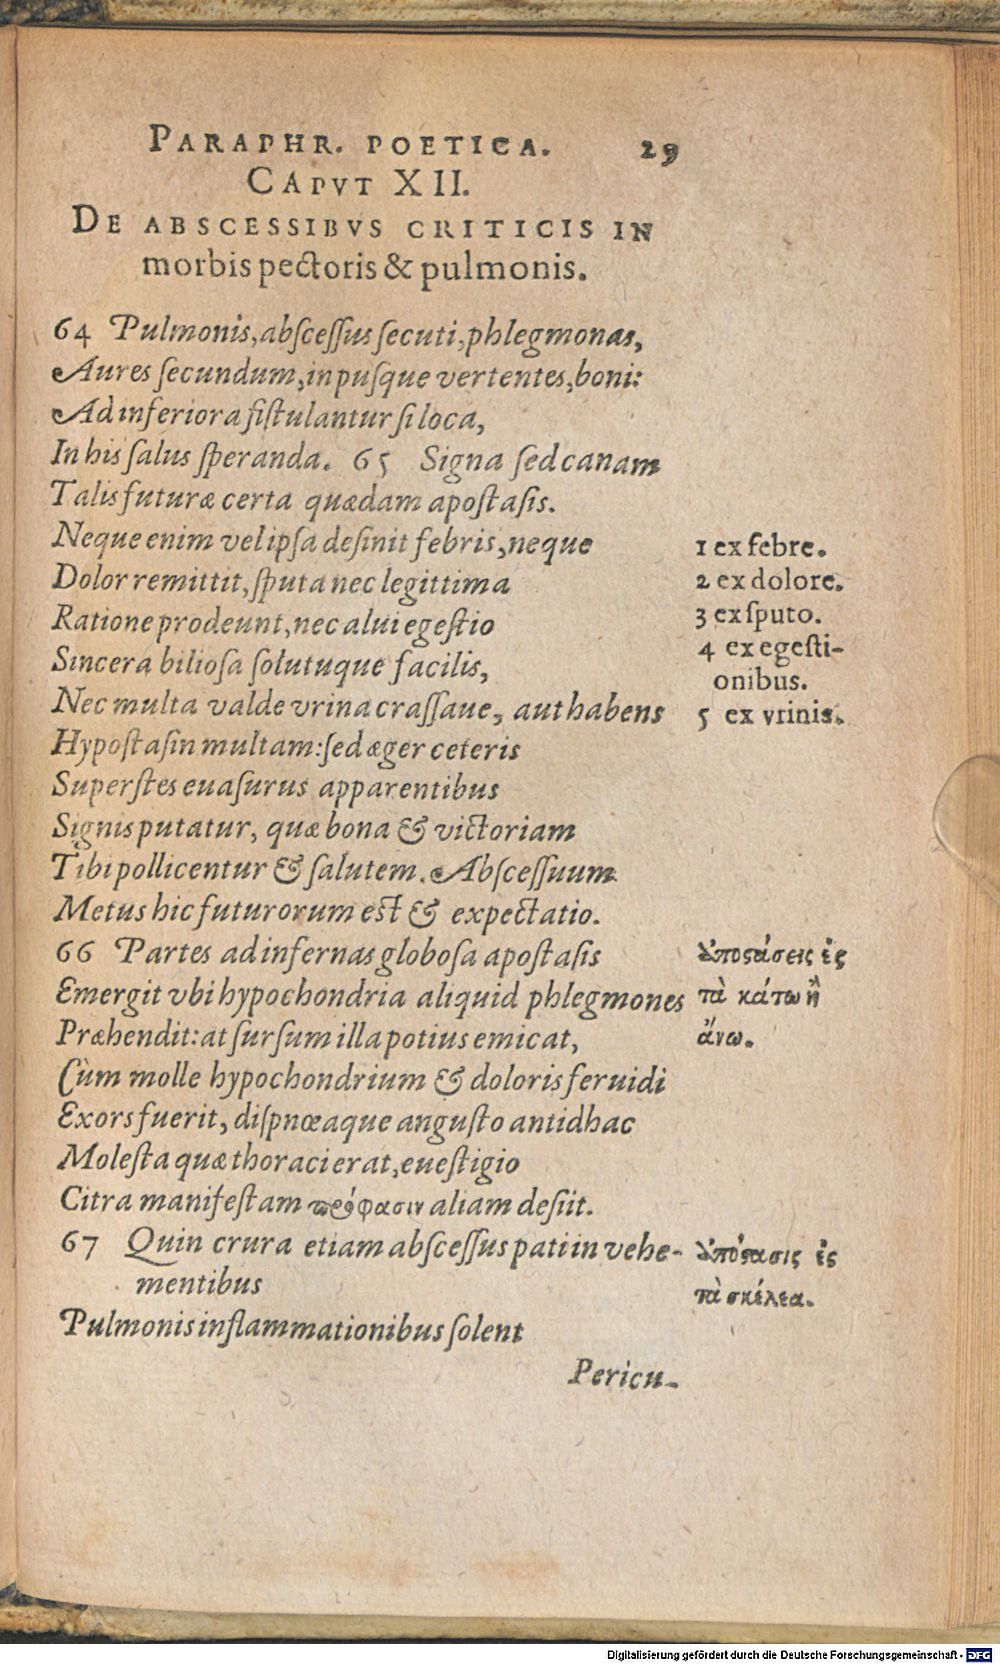 PARAPHR. POETICA. 29
CAPVT XII.
DE ABSCESSIBVS CRITICIS IN
morbis pectoris & pulmonis.
64 Pulmonis, abſceſſus ſecuti, phlegmonas,
Aures ſecundum, in puſque vertentes, boni:
Ad inferiora fiſtulantur ſi loca,
In his ſalus ſperanda. 65 Signa ſed canam
Talis futuræ certa quædam apoſtaſis.
Neque enim vel ipſa deſinit febris, neque
1 ex febre.
Dolor remittit, ſputa nec legittima
2 ex dolore.
Ratione prodeunt, nec alui egeſtio
3 ex ſputo.
Sincera bilioſa ſolutuque facilis,
4 ex egeſti-
onibus.
Nec multa valde vrina craſſaue, aut habens
5 ex vrinis.
Hypoſtaſin multam: ſed æger ceteris
Superſtes euaſurus apparentibus
Signis putatur, quæ bona & victoriam
Tibi pollicentur & ſalutem. Abſceſſuum
Metus hic futurorum eſt & expectatio.
66 Partes ad infernas globoſa apoſtaſis
Ὑποστάσεις ἐς
Emergit vbi hypochondria aliquid phlegmones
τὰ κάτω ἢ
Præhendit: at ſurſum illa potius emicat,
ἄνω.
Cùm molle hypochondrium & doloris feruidi
Exors fuerit, diſpnœaque anguſto antidhac
Moleſta quæ thoraci erat, e veſtigio
Citra manifeſtam πρόφασιν aliam deſiit.
67 Quin crura etiam abſceſſus pati in vehe-
mentibus
Ὑπόστασις ἐς
τὰ σκέλεα.
Pulmonis inflammationibus ſolent
Pericu-
Digitalisierung gefördert durch die Deutsche Forschungsgemeinschaft - DFG